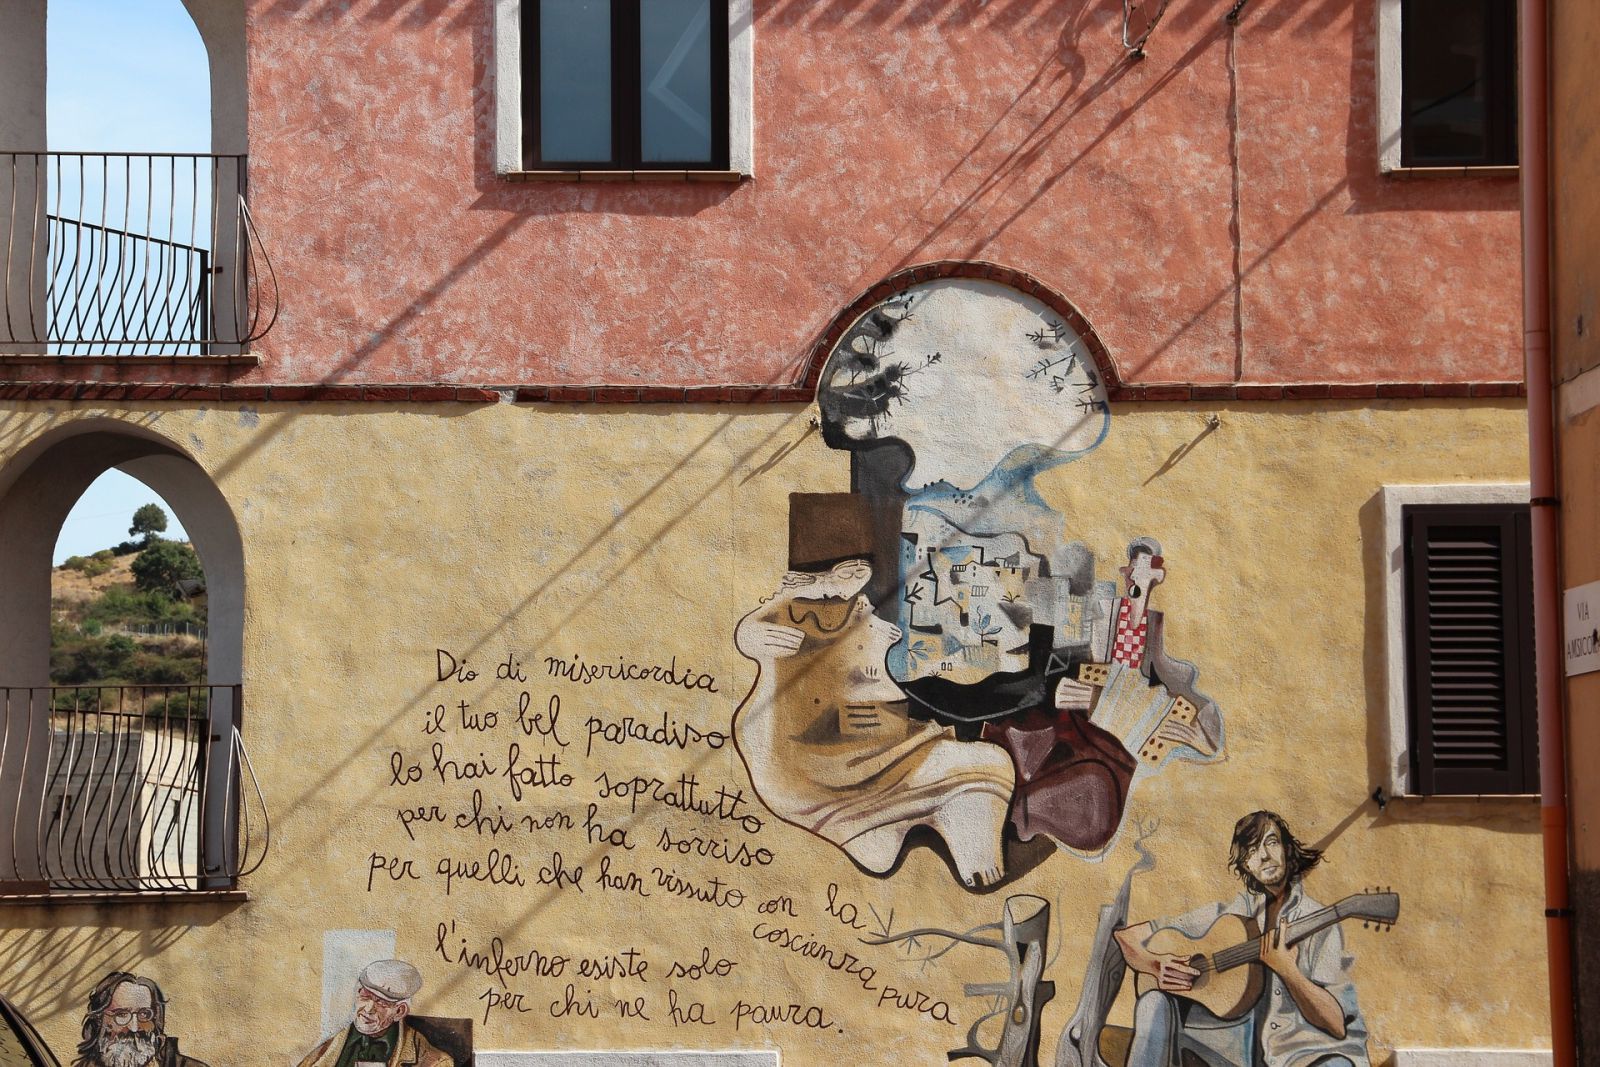 Dio di misericordia
il tuo bel paradiso
lo hai fatto soprattutto
per chi non ha sorriso
per quelli che han vissuto con la
coscienza pura
l'inferno esiste solo
per chi ne ha paura.
VIA
AMSICORA